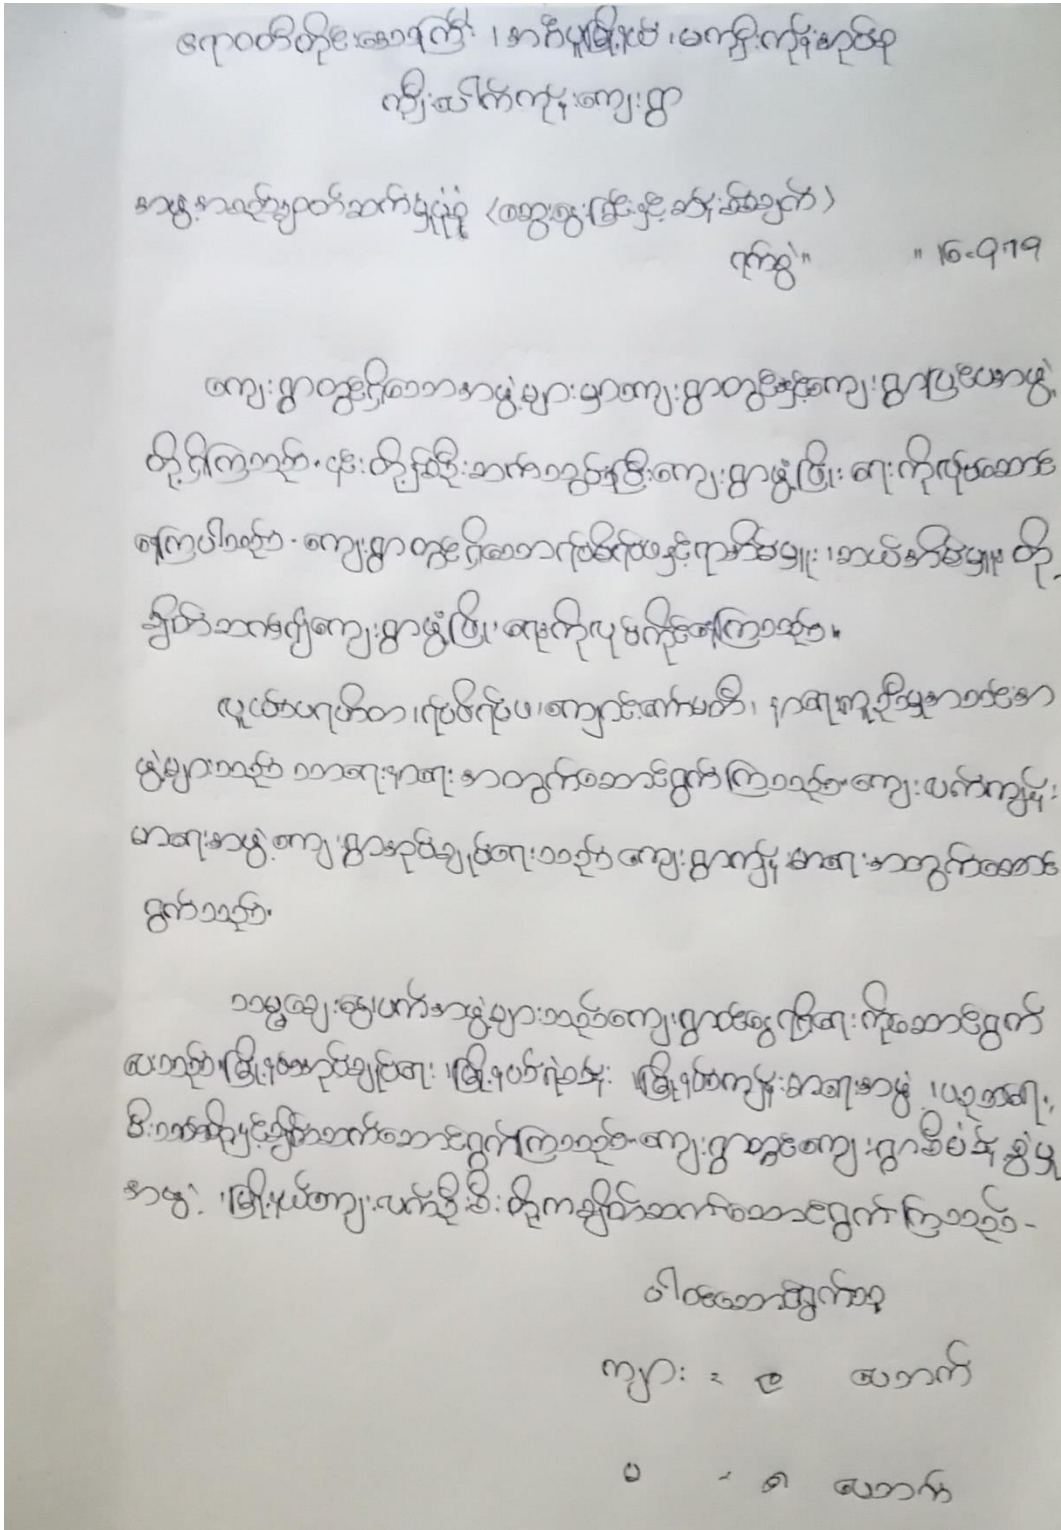 ဧရာဝတီတိုင်းဒေသကြီး ၊ အင်္ဂပူမြို့နယ် ၊ မကျီးကုန်းအုပ်စု
ကျီးပေါက်ကုန်းကျေးရွာ
အဖွဲ့အစည်းချိတ်ဆက်မှုပုံစံ (ဆွေးနွေးခြင်းနှင့်ဆန်းစစ်ချက်)
ရက်စွဲ" " 16.9.19
ကျေးရွာတွင်ရှိသောအဖွဲ့များမှာကျေးရွာတွင်းနှင့်ကျေးရွာပြင်ပအဖွဲ့
တို့ရှိကြသည်. ၎င်းတို့နှင့်ဆက်သွယ်ပြီးကျေးရွာဖွံ့ဖြိုးရေးကိုလုပ်ဆောင်
နေကြပါသည်. ကျေးရွာတွင်ရှိသောရပ်မိရပ်ဖနှင့်ရာအိမ်မှူး ၊ ဆယ်အိမ်မှူး တို့
ချိတ်ဆက်၍ကျေးရွာဖွံ့ဖြိုးရေးကိုလုပ်ကိုင်နေကြသည်။
လူငယ်ပရဟိတ ၊ ရပ်မိရပ်ဖ ၊ ကျောင်းကော်မတီ ၊ နာရေးကူညီမှုအသင်းအ
ဖွဲ့များသည် သာရေးနာရေး အတွက်ဆောင်ရွက်ကြသည်. ကျေးလက်ကျန်း
မာရေးအဖွဲ့ ကျေးရွာအုပ်ချုပ်ရေးသည် ကျေးရွာကျန်းမာရေးအတွက်ဆောင်
ရွက်သည်.
သမ္မချေးငွေပတ်အဖွဲ့များသည်ကျေးရွာငွေရရှိရေးကိုဆောင်ရွက်
ပေးသည်. မြို့နယ်အုပ်ချုပ်ရေး ၊ မြို့နယ်ရဲစခန်း ၊ မြို့နယ်ကျန်းမာရေးအဖွဲ့ ၊ ပညာရေး,
မီးသတ်တို့နှင့်ချိတ်ဆက်ဆောင်ရွက်ကြသည်. ကျေးရွာတွင်ကျေးရွာစီမံခန့်ခွဲမှု
အဖွဲ့ ၊ မြို့နယ်ကျေးလက်ဦးစီး တို့ကချိတ်ဆက်ဆောင်ရွက်ကြသည်-
ပါဝင်ဆောင်ရွက်သူ
ကျား - ယောက်
မ - ယောက်